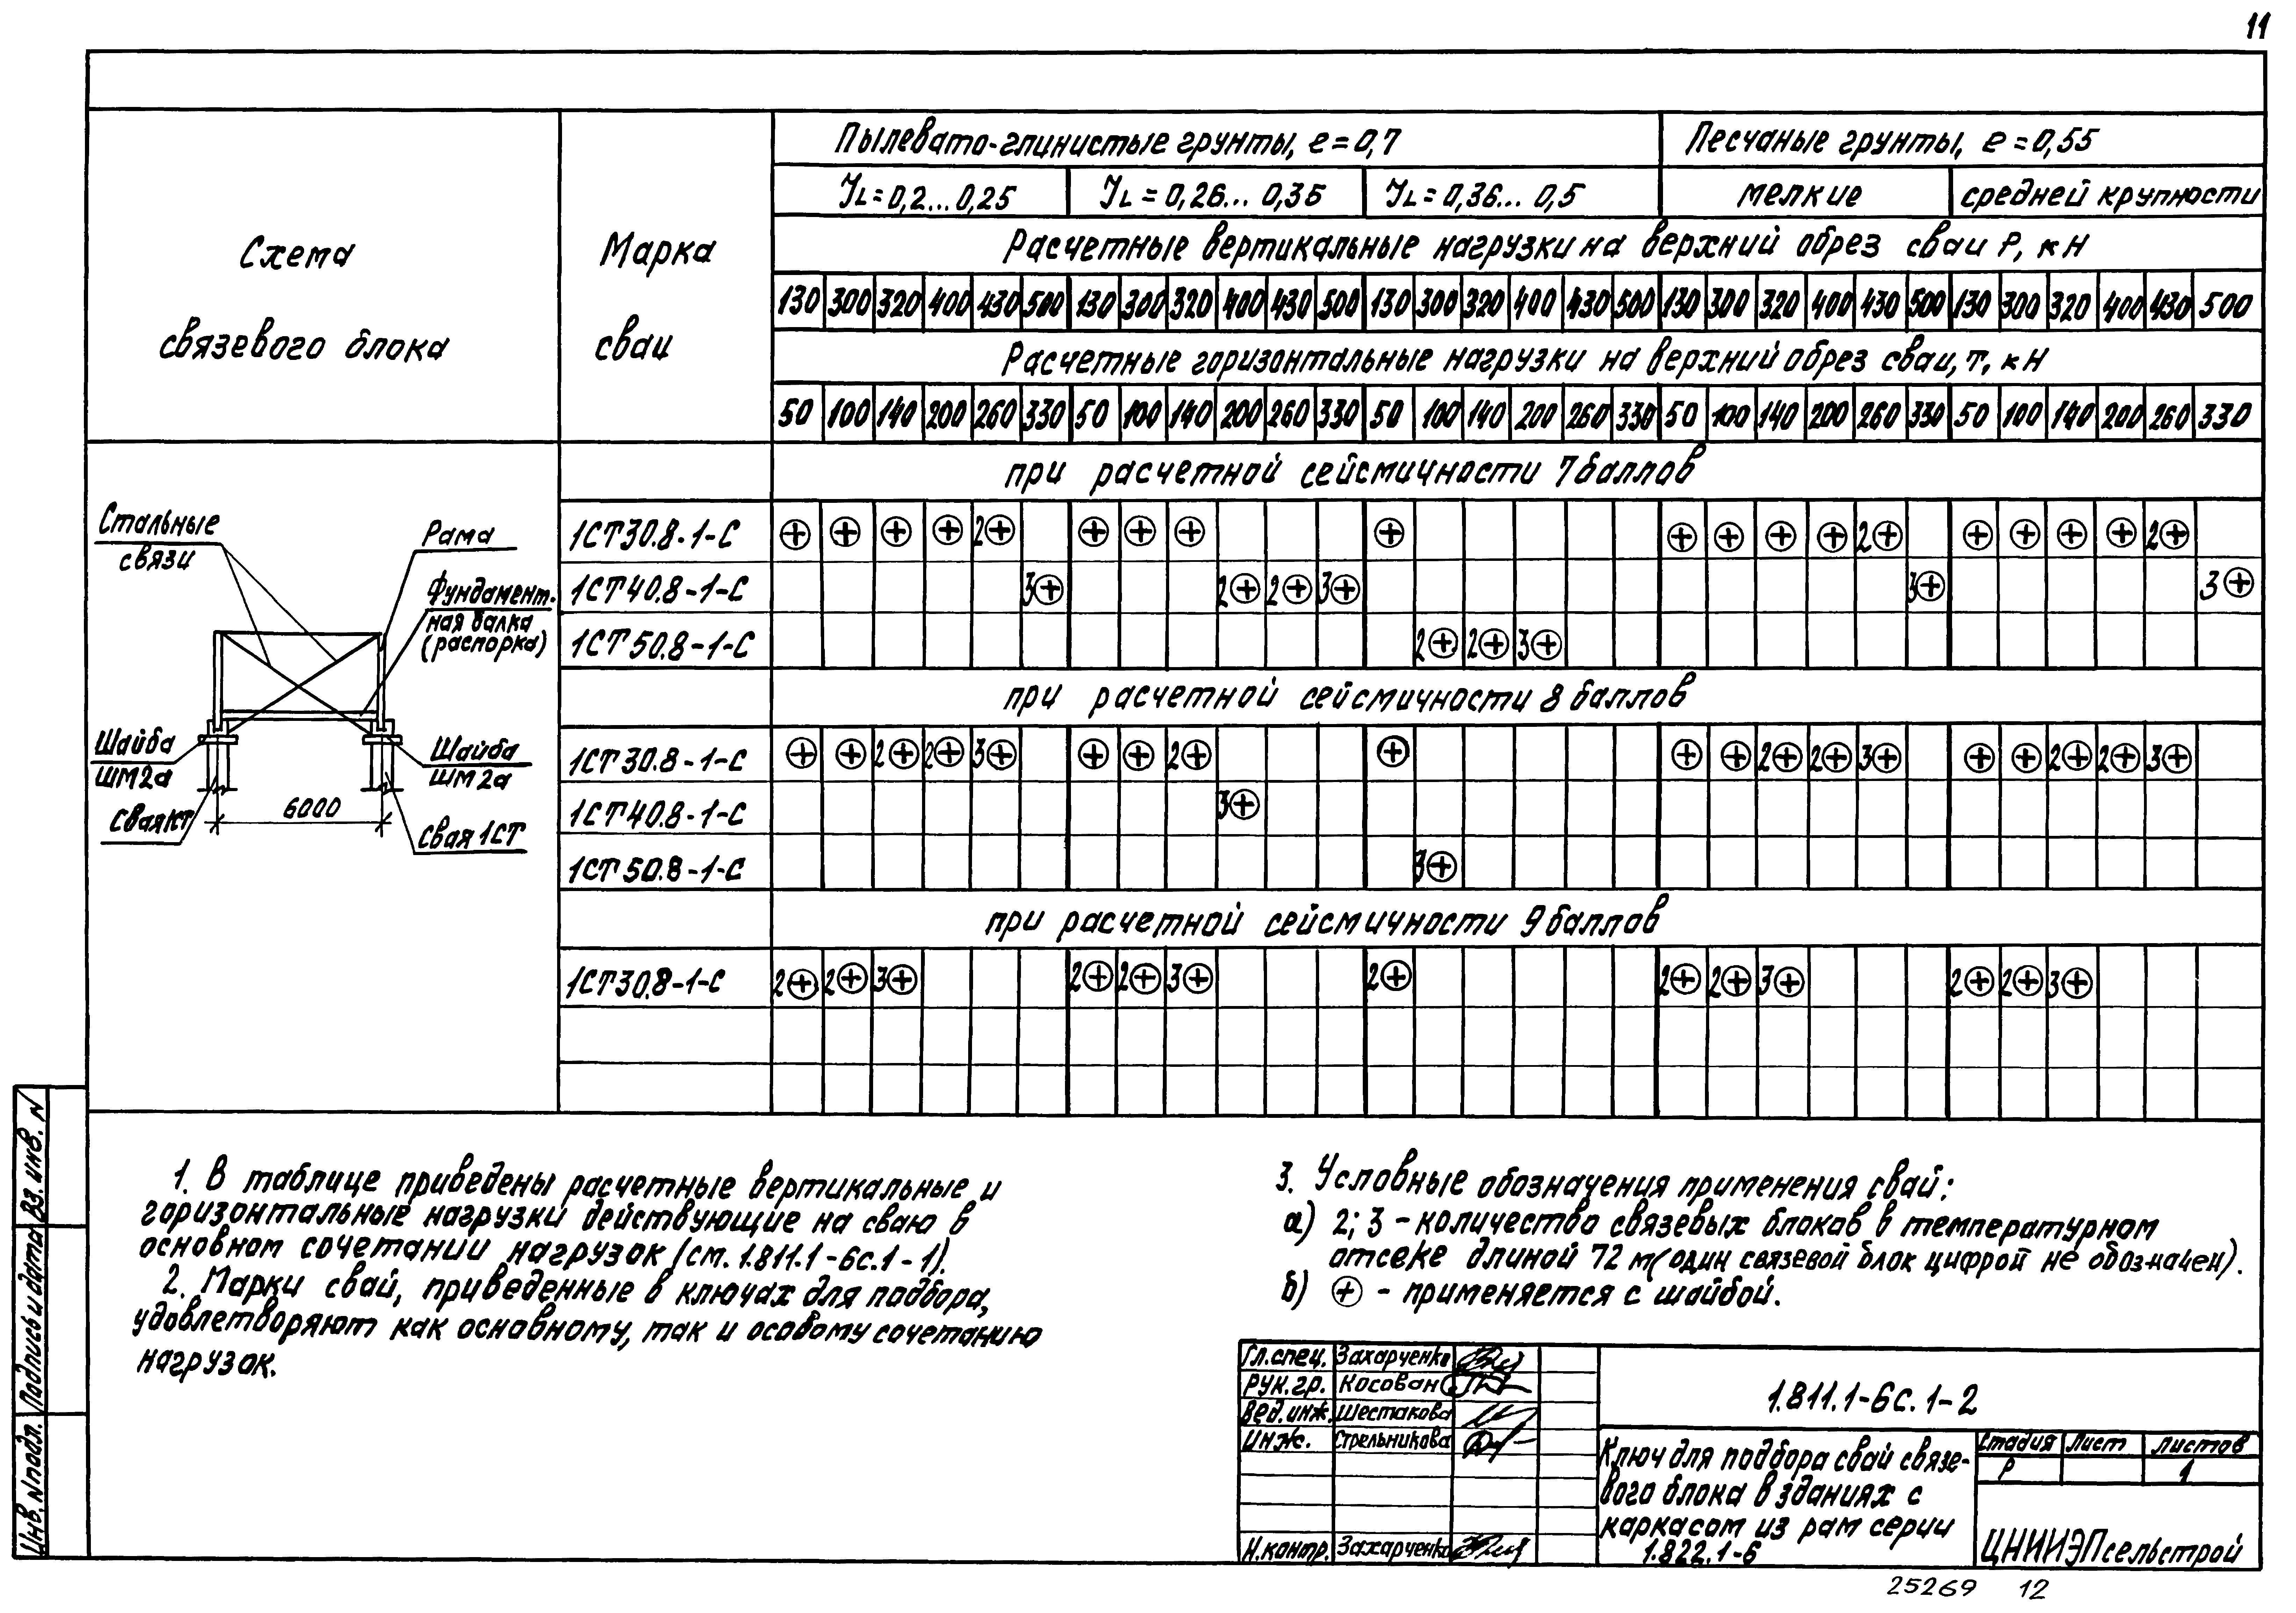 11
Схема
связевого блока
Марка
сваи
Пылевато-глинистые грунты, e=0,7
Песчаные грунты, e=0,55
JL=0,2...0,25 JL=0,26...0,35 JL=0,36...0,5 мелкие средней крупности
Расчетные вертикальные нагрузки на верхний обрез сваи P, кН
130 300 320 400 430 500 130 300 320 400 430 500 130 300 320 400 430 500 130 300 320 400 430 500 130 300 320 400 430 500
Расчетные горизонтальные нагрузки на верхний обрез сваи, т, кН
50 100 140 200 260 330 50 100 140 200 260 330 50 100 140 200 260 330 50 100 140 200 260 330 50 100 140 200 260 330
при расчетной сейсмичности 7 баллов
1СТ30.8-1-С ⊕ ⊕ ⊕ ⊕ 2⊕ ⊕ ⊕ ⊕ ⊕ ⊕ ⊕ ⊕ ⊕ 2⊕ ⊕ ⊕ ⊕ ⊕ 2⊕
1СТ40.8-1-С 3⊕ 2⊕ 2⊕ 3⊕ 3⊕ 3⊕
1СТ50.8-1-С 2⊕ 2⊕ 3⊕
при расчетной сейсмичности 8 баллов
1СТ30.8-1-С ⊕ ⊕ 2⊕ 2⊕ 3⊕ ⊕ ⊕ 2⊕ ⊕ ⊕ ⊕ 2⊕ 2⊕ 3⊕ ⊕ ⊕ 2⊕ 2⊕ 3⊕
1СТ40.8-1-С 3⊕
1СТ50.8-1-С 3⊕
при расчетной сейсмичности 9 баллов
1СТ30.8-1-С 2⊕ 2⊕ 3⊕ 2⊕ 2⊕ 3⊕ 2⊕ 2⊕ 2⊕ 3⊕ 2⊕ 2⊕ 3⊕
Стальные
связи
Рама
Фундамент-
ная балка
(распорка)
Шайба
ШМ2а
Шайба
ШМ2а
Свая 1СТ
6000
свая 1СТ
1. В таблице приведены расчетные вертикальные и
горизонтальные нагрузки действующие на сваю в
основном сочетании нагрузок (см. 1.811.1-6с.1-1).
2. Марки свай, приведенные в ключах для подбора,
удовлетворяют как основному, так и особому сочетанию
нагрузок.
3. Условные обозначения применения свай:
а) 2; 3 - количество связевых блоков в температурном
отсеке длиной 72 м (один связевой блок цифрой не обозначен).
б) ⊕ - применяется с шайбой.
Гл.спец. Захарченко
Рук.гр. Косован
Вед.инж. Шестакова
Инж. Стрельникова
Н.контр. Захарченко
1.811.1-6с.1-2
Ключ для подбора свай связе-
вого блока в зданиях с
каркасом из рам серии
1.822.1-6
Стадия Лист Листов
Р 1
ЦНИИЭПсельстрой
25269 12
Инв. № подл. Подпись и дата Вз. инв. №